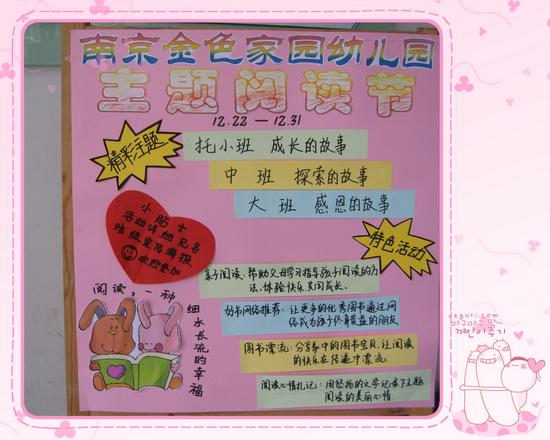 南京金色家园幼儿园
主题阅读节
12.22 — 12.31
精彩主题
托小班 成长的故事
中 班 探索的故事
大 班 感恩的故事
小贴士
活动详细见各
班级宣传海报
欢迎参加
特色活动
亲子阅读：帮助父母学习指导孩子阅读的方
法，体验快乐共同成长。
好书网络推荐：让更多的优秀图书通过网
络成为孩子终身受益的朋友
图书漂流：分享家中的图书宝贝，让阅读
的快乐在传递中漂流.
阅读心情札记：用轻松的文字记录下主题
阅读的美丽心情.
阅读，一种
细水长流的幸福
deguri.com